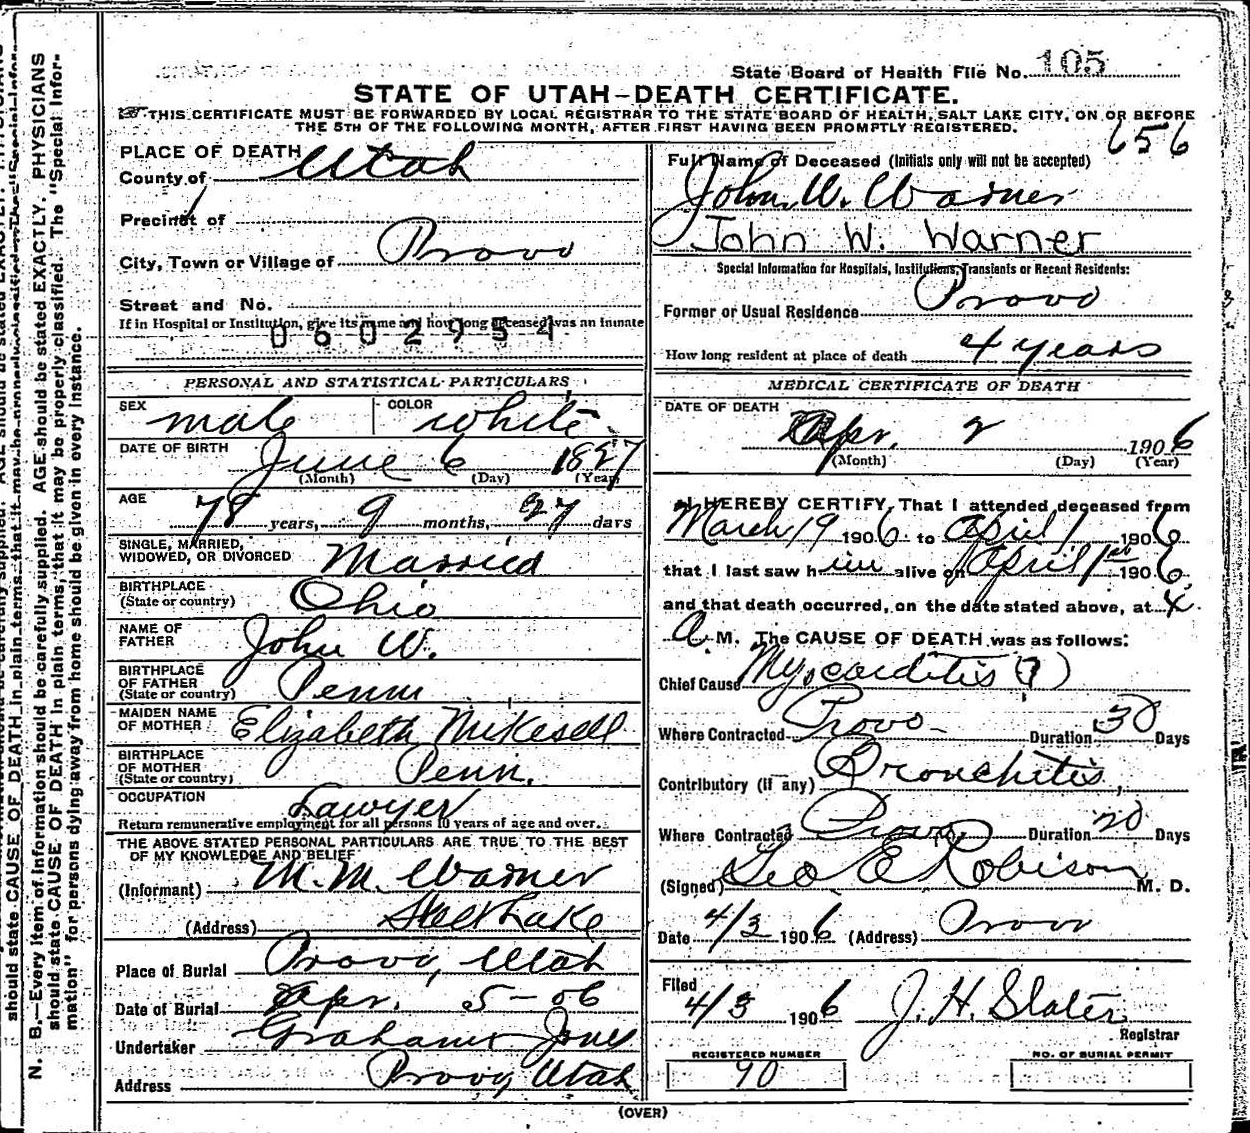 State Board of Health File No. 105
STATE OF UTAH—DEATH CERTIFICATE.
THIS CERTIFICATE MUST BE FORWARDED BY LOCAL REGISTRAR TO THE STATE BOARD OF HEALTH, SALT LAKE CITY, ON OR BEFORE
THE 5TH OF THE FOLLOWING MONTH, AFTER FIRST HAVING BEEN PROMPTLY REGISTERED.
656
PLACE OF DEATH
County of Utah
Precinct of
City, Town or Village of Provo
Street and No.
If in Hospital or Institution, give its name and how long deceased was an inmate
0602954
PERSONAL AND STATISTICAL PARTICULARS
SEX male COLOR white
DATE OF BIRTH June 6 1827
(Month) (Day) (Year)
AGE 78 years, 9 months, 27 days
SINGLE, MARRIED,
WIDOWED, OR DIVORCED Married
BIRTHPLACE
(State or country) Ohio
NAME OF
FATHER John W.
BIRTHPLACE
OF FATHER
(State or country) Penn
MAIDEN NAME
OF MOTHER Elizabeth Mikesell
BIRTHPLACE
OF MOTHER
(State or country) Penn.
OCCUPATION Lawyer
Return remunerative employment for all persons 10 years of age and over.
THE ABOVE STATED PERSONAL PARTICULARS ARE TRUE TO THE BEST
OF MY KNOWLEDGE AND BELIEF
(Informant) M. M. Warner
(Address) Salt Lake
Place of Burial Provo, Utah
Date of Burial Apr. 5-06
Undertaker Graham Jones
Address Provo, Utah
Full Name of Deceased (Initials only will not be accepted)
John W. Warner
John W. Warner
Special Information for Hospitals, Institutions, Transients or Recent Residents:
Former or Usual Residence Provo
How long resident at place of death 4 years
MEDICAL CERTIFICATE OF DEATH
DATE OF DEATH
Apr. 2 1906
(Month) (Day) (Year)
I HEREBY CERTIFY, That I attended deceased from
March 19 1906 to April 1 1906
that I last saw him alive on April 1st 1906,
and that death occurred, on the date stated above, at 4
A. M. The CAUSE OF DEATH was as follows:
Chief Cause Myocarditis (?)
Where Contracted Provo Duration 30 Days
Contributory (if any) Bronchitis,
Where Contracted Provo Duration 20 Days
(Signed) Geo E Robison M. D.
Date 4/3 1906 (Address) Provo
Filed
4/3 1906 J. H. Slater
Registrar
REGISTERED NUMBER
90
NO. OF BURIAL PERMIT
(OVER)
N. B.—Every item of information should be carefully supplied. AGE should be stated EXACTLY. PHYSICIANS
should state CAUSE OF DEATH in plain terms, that it may be properly classified. The "Special Infor-
mation" for persons dying away from home should be given in every instance.